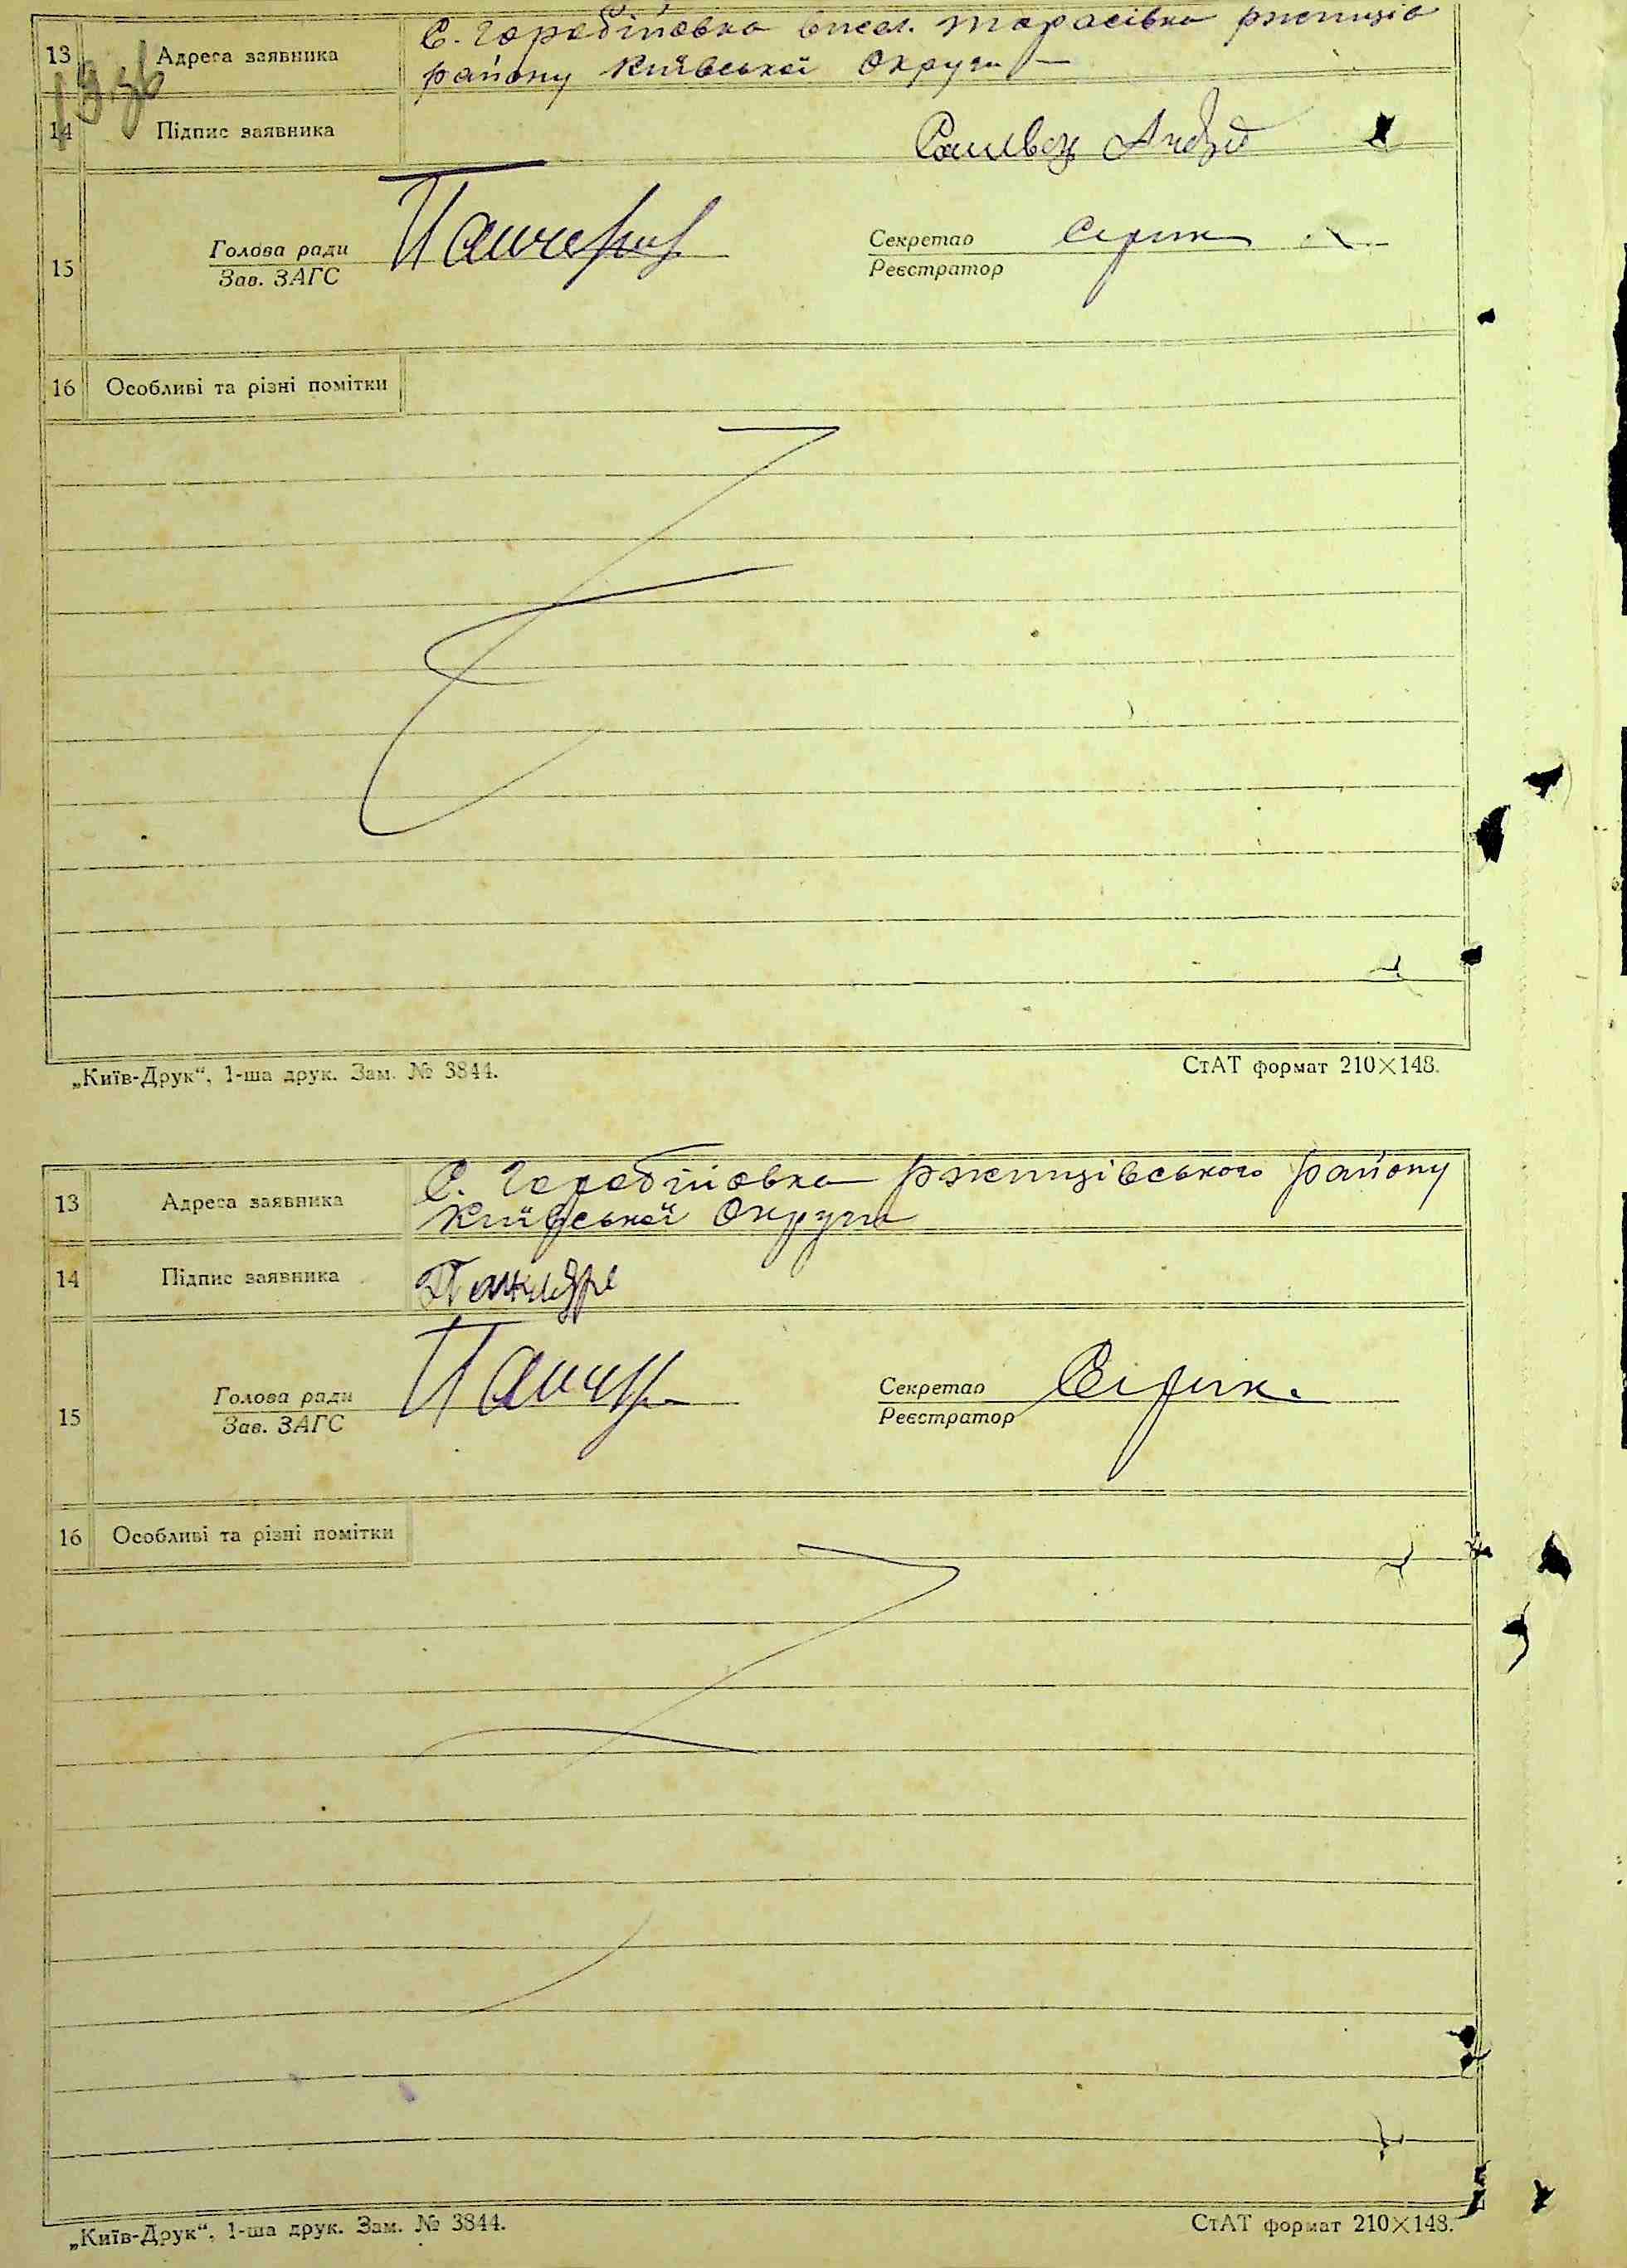 13 Адреса заявника С. Горобіївка висел. Тарасівка ржищів
району Київської Округи —
14 Підпис заявника Андрій
15 Голова ради Секретар Сірик
Зав. ЗАГС Реєстратор
16 Особливі та різні помітки
„Київ-Друк“, 1-ша друк. Зам. № 3844. СтАТ формат 210×148.
13 Адреса заявника С. Горобіївка Ржищівського району
Київської Округи
14 Підпис заявника
15 Голова ради Секретар Сірик.
Зав. ЗАГС Реєстратор
16 Особливі та різні помітки
„Київ-Друк“, 1-ша друк. Зам. № 3844. СтАТ формат 210×148.